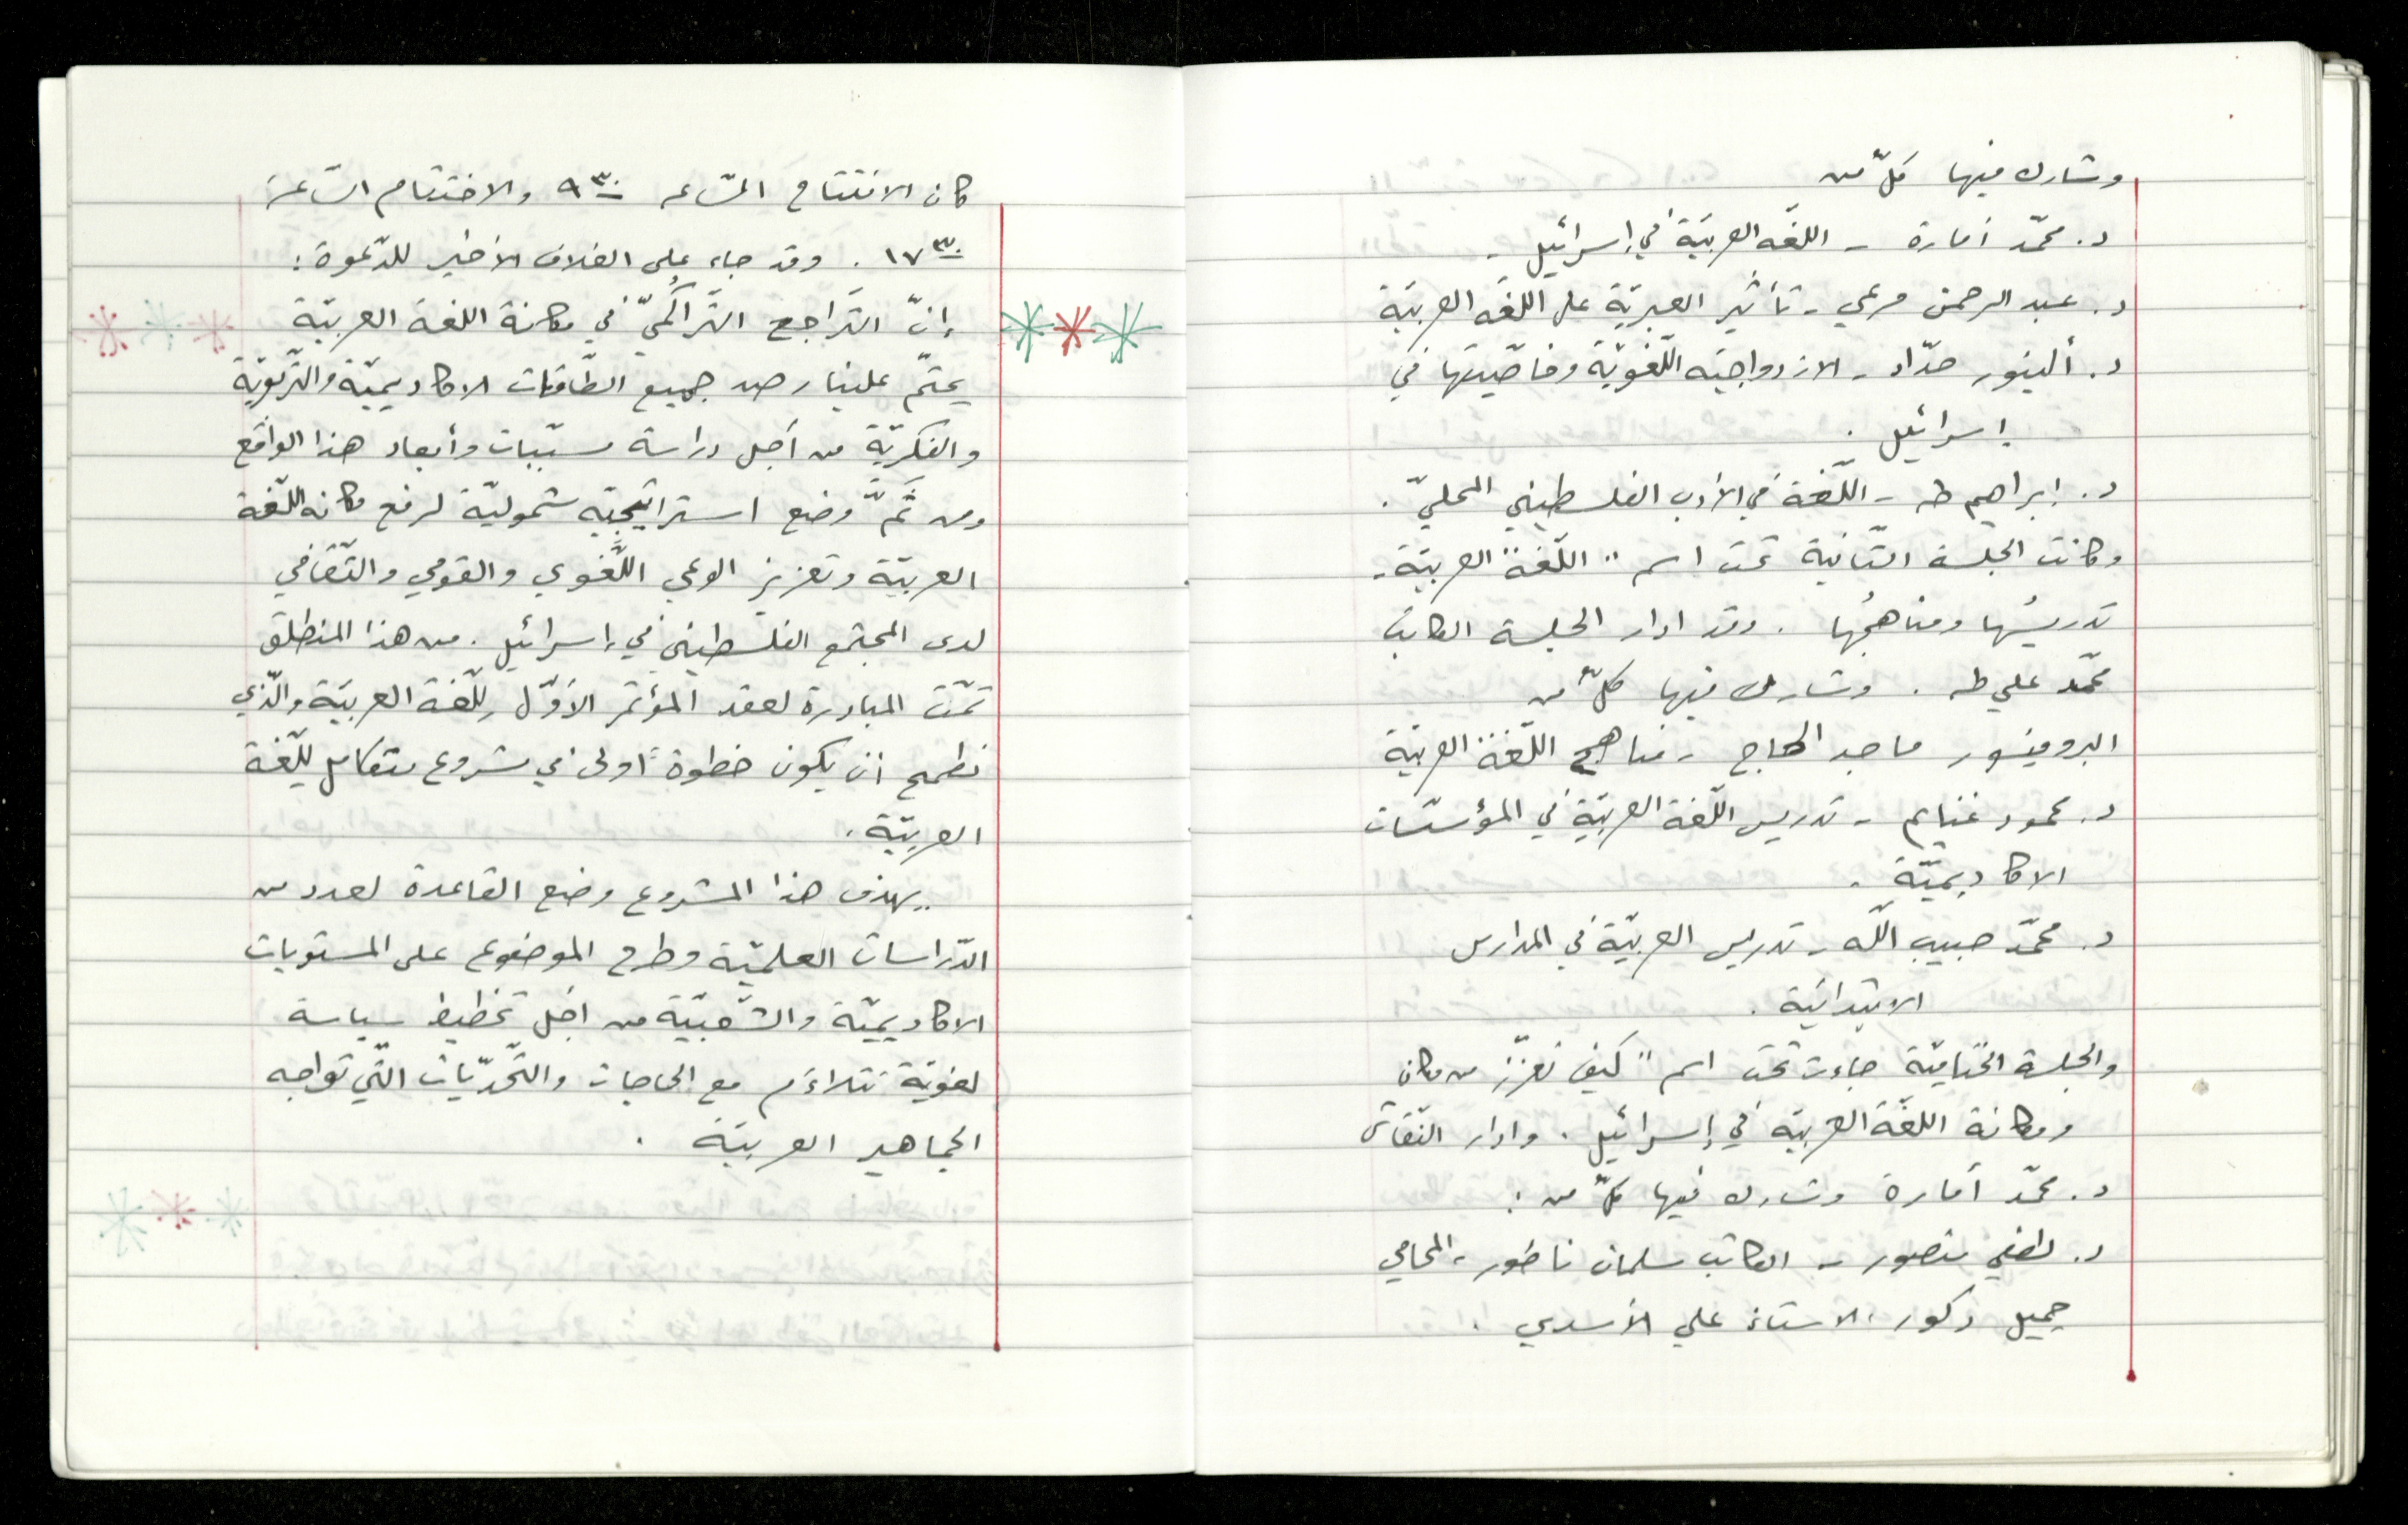 وشارك فيها كلٌّ من
د. محمّد أمارة - اللغة العربيّة في إسرائيل -
د. عبد الرحمن مرعي - تأثير العبريّة على اللغة العربيّة
د. ألينور حدّاد - الازدواجيّه اللّغويّة وخاصّيتها في
إسرائيل .
د. ابراهيم طه - اللّغة في الأدب الفلسطيني المحليّ .
وكانت الجلسة الثّانية تحت اسم " اللّغة العربيّة -
تدريسُها ومناهجُها . وقد ادار الجلسة الكاتب
محمّد علي طه . وشارك فيها كلٌّ من
البروفيسور ماجد الحاج - مناهج اللّغة العربيّة
د. محمود غنايم - تدريس اللّغة العربيّة في المؤسّسات
الاكاديميّة .
د. محمّد حبيب اللّه - تدريس العربيّة في المدارس
الابتدائيّة .
والجلسة الختاميّة جاءت تحت اسم " كيف نعزّز من مكان
ومكانة اللغة العربيّة في إسرائيل . وادار النّقاش
د. محمّد أمارة وشارك فيها كلٌّ من :
د. لطفي منصور - الكاتب سلمان ناطور ، المحامي
جميل دكور ، الاستاذ علي الأسدي .
كان الافتتاح السّاعه ٩٣٠ والاختتام السّاعة
١٧٣٠ . وقد جاء على الغلاف الأخير للدّعوة :
إنّ التّراجع التّراكُميّ في مكانة اللغة العربيّة
يحتّم علينا رصد جميع الطّاقات الاكاديميّة والتّربويّة
والفكريّة من أجل دراسة مسبّبات وأبعاد هذا الواقع
ومن ثَمَّ وضع استراتيجيّه شموليّة لرفع مكانه اللّغة
العربيّة وتعزيز الوعي اللُّغوي والقومي والثّقافي
لدى المجتمع الفلسطيني في إسرائيل . من هذا المنطلق
تمّت المبادرة لعقد المؤتمر الأوّل للّغة العربيّة والّذي
نطمح ان يكون خطوةً اولى في مشروع متكامل للّغة
العربيّة .
يهدف هذا المشروع وضع القاعدة لعدد من
الدّراسات العلميّة وطرح الموضوع على المستويات
الاكاديميّة والشّعبيّة من اجل تخطيط سياسة
لغويّة تتلاءَم مع الحاجات والتّحدّيات الّتي تواجه
الجماهير العربيّة .